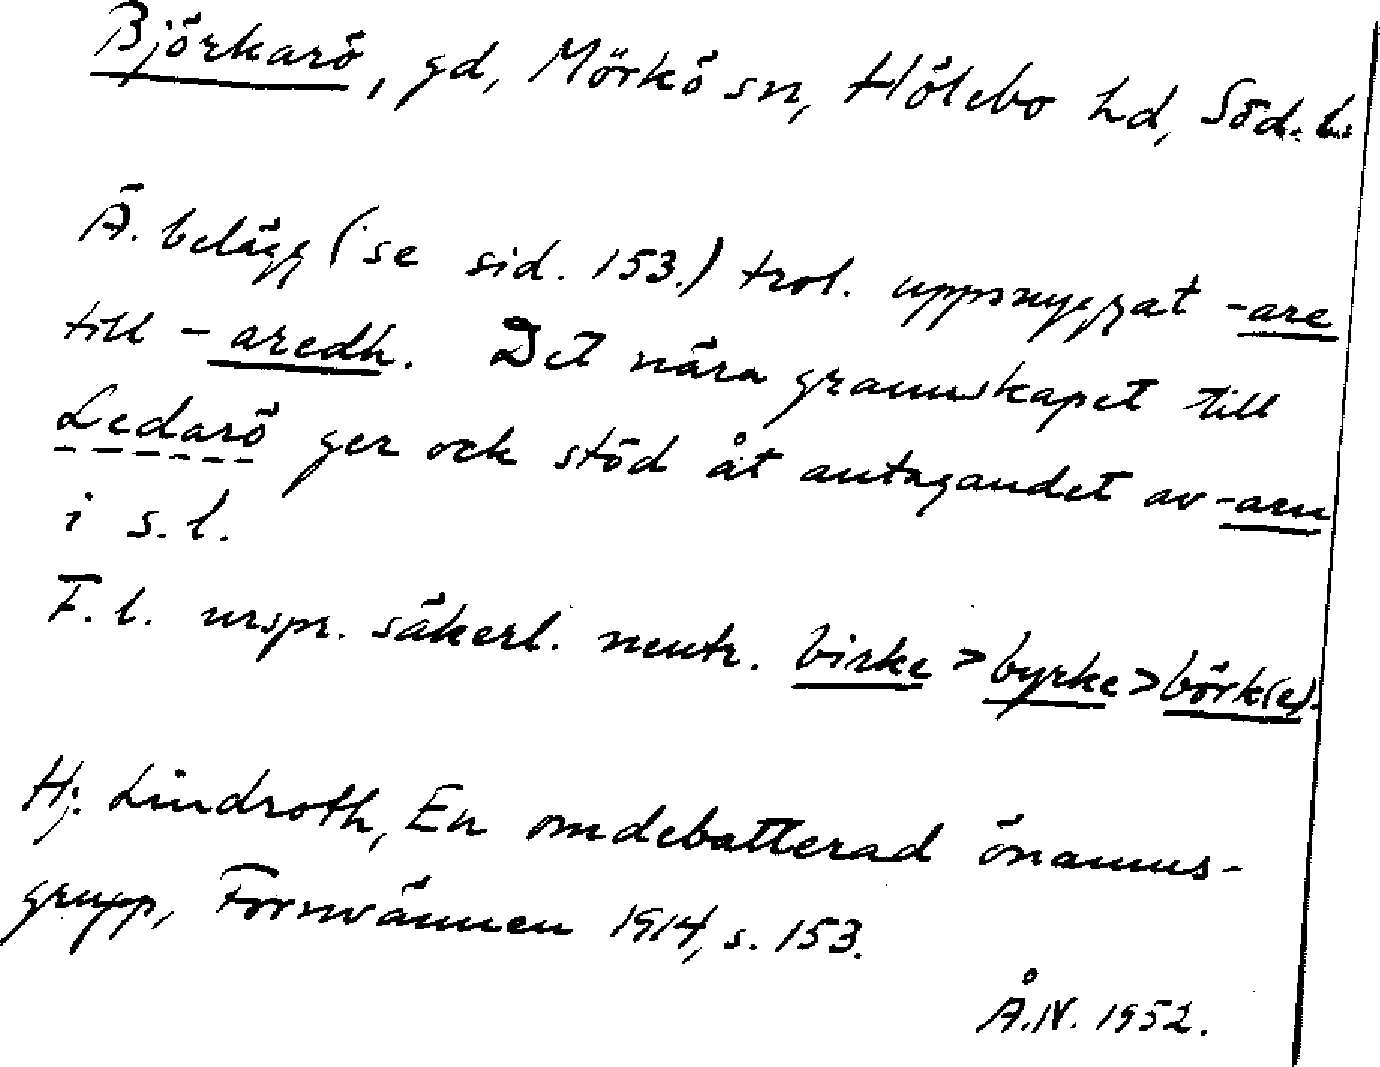 Björkarö, gd, Mörkö sn, Hölebo hd, Söd. l.
Ä. belägg (se sid. 153.) trol. uppsnyggat -are
till -aredh. Det nära grannskapet till
Ledarö ger ock stöd åt antagandet av -arn
i s.l.
F.l. urspr. säkerl. neutr. birke > byrke > börk(e).
Hj. Lindroth, En omdebatterad önamns-
grupp, Fornvännen 1914, s. 153.
Å.N. 1952.